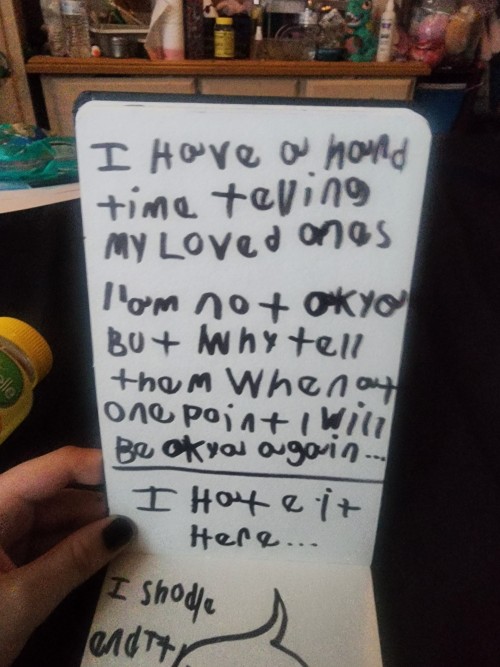 I Have a hard
time telling
My Loved ones
I'am not okya
But Why tell
them When at
one point I Will
Be okya again...
I Hate it
Here...
I shodle
end It
elle